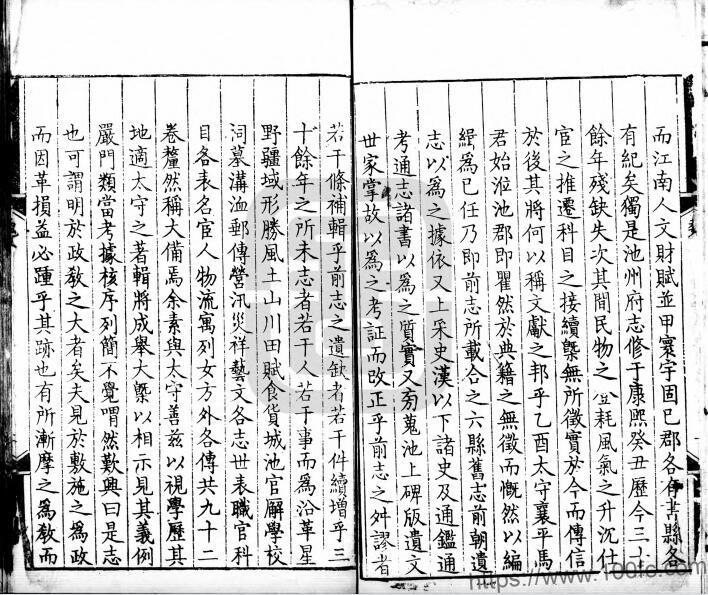 而江南人文財賦並甲寰宇固已郡各有書縣各
有紀矣獨是池州府志修于康熙癸丑歷今三十
餘年殘缺失次其間民物之登耗風氣之升沉仕
宦之推遷科目之接續槩無所徵實於今而傳信
於後其將何以稱文獻之邦乎乙酉太守襄平馬
君始涖池郡即瞿然於典籍之無徵而慨然以編
緝為已任乃即前志所載合之六縣舊志前朝遺
志以為之據依又上采史漢以下諸史及通鑑通
考通志諸書以為之質實又旁蒐池上碑版遺文
世家掌故以為之考証而改正乎前志之舛謬者
若干條補輯乎前志之遺缺者若干件續增乎三
十餘年之所未志者若干人若干事而為沿革星
野疆域形勝風土山川田賦食貨城池官廨學校
祠墓溝洫郵傳營汛災祥藝文各志世表職官科
目各表名宦人物流寓列女方外各傳共九十二
卷釐然稱大備焉余素與太守善兹以視學歷其
地適太守之著輯將成舉大槩以相示見其義例
嚴門類當考據核序列簡不覺喟然歎興曰是志
也可謂明於政教之大者矣夫見於敷施之為政
而因革損益必踵乎其跡也有所漸摩之為教而
https://www.100fo.com